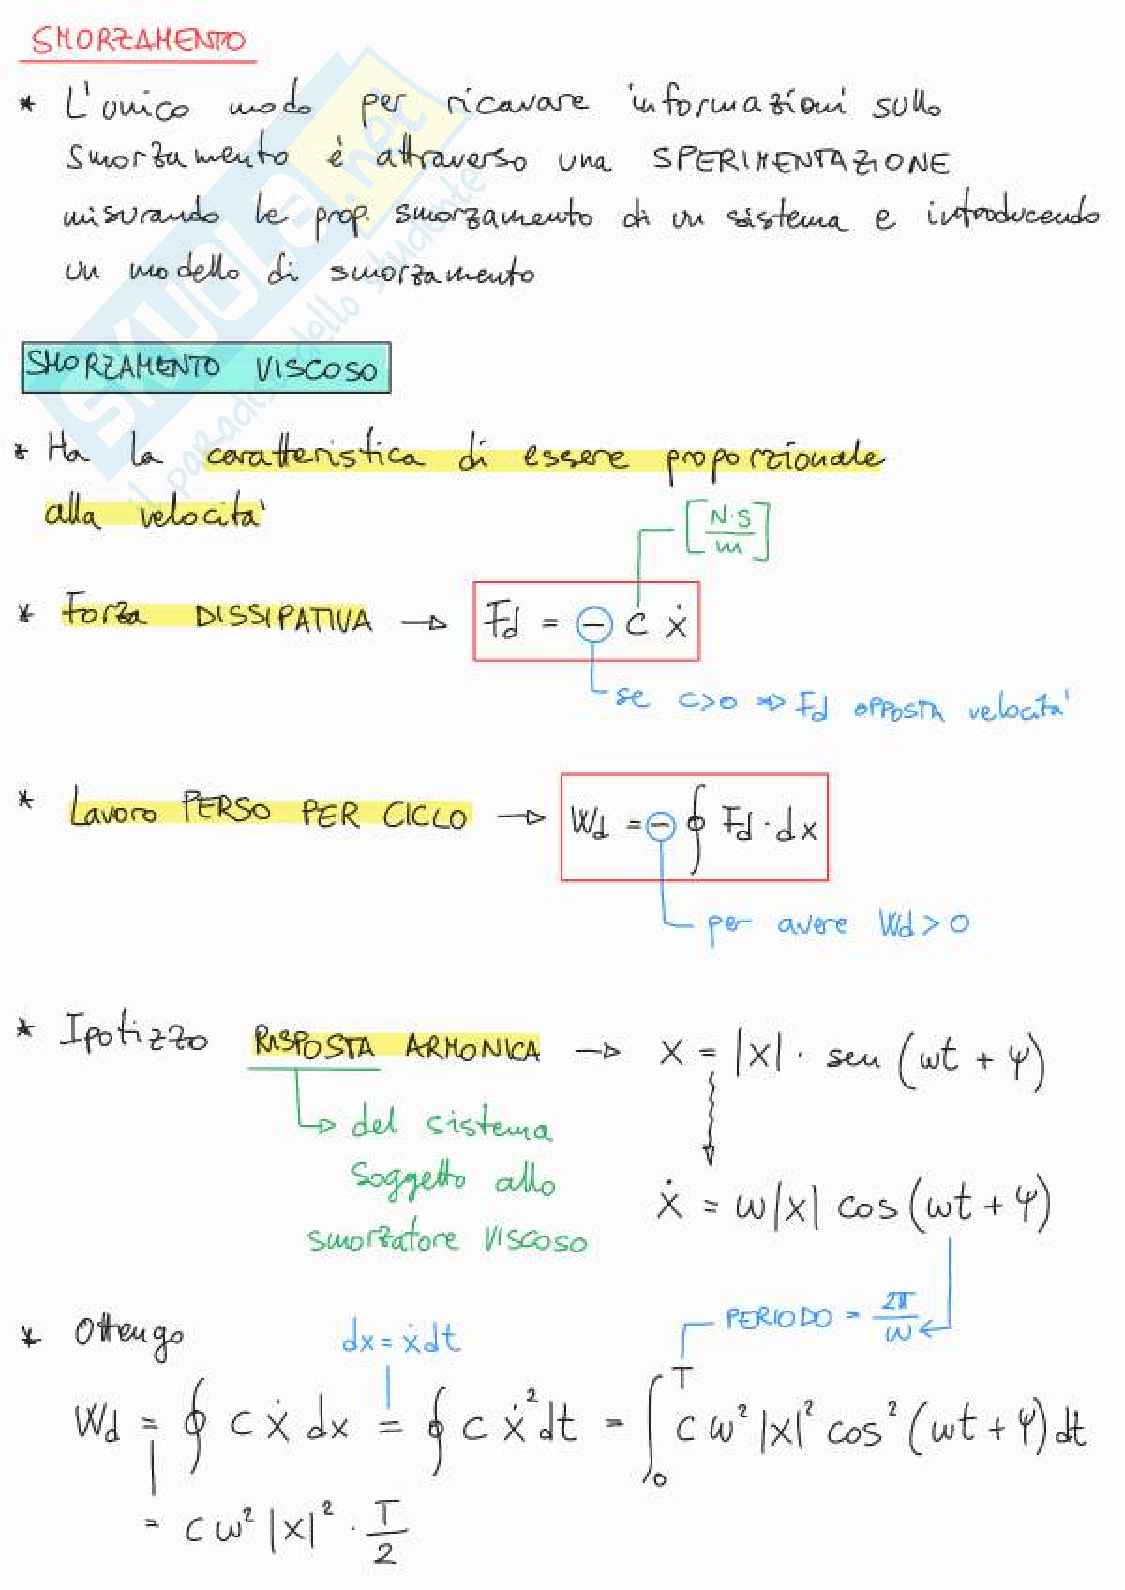 SMORZAMENTO
* L'unico modo per ricavare informazioni sullo
smorzamento è attraverso una SPERIMENTAZIONE
misurando le prop. smorzamento di un sistema e introducendo
un modello di smorzamento
SMORZAMENTO VISCOSO
* Ha la caratteristica di essere proporzionale
alla velocita'
[N·s/m]
* Forza DISSIPATIVA → Fd = - c ẋ
se c>0 ⇒ Fd OPPOSTA velocita'
* Lavoro PERSO PER CICLO → Wd = - ∮ Fd · dx
per avere Wd > 0
* Ipotizzo RISPOSTA ARMONICA → x = |x| · sen (ωt + φ)
del sistema
soggetto allo
smorzatore VISCOSO
ẋ = ω|x| cos (ωt + φ)
PERIODO = 2π/ω
* Ottengo
dx = ẋ dt
Wd = ∮ c ẋ dx = ∮ c ẋ² dt = ∫₀ᵀ c ω² |x|² cos² (ωt + φ) dt
= c ω² |x|² · T/2
SKUOLA.net
il paradiso dello studente